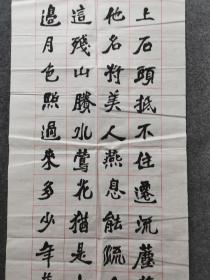 上石頭抵不住遷流塵
他名將美人燕息能流
這殘山賸水鶯花猶是
邊月色照過來多少年